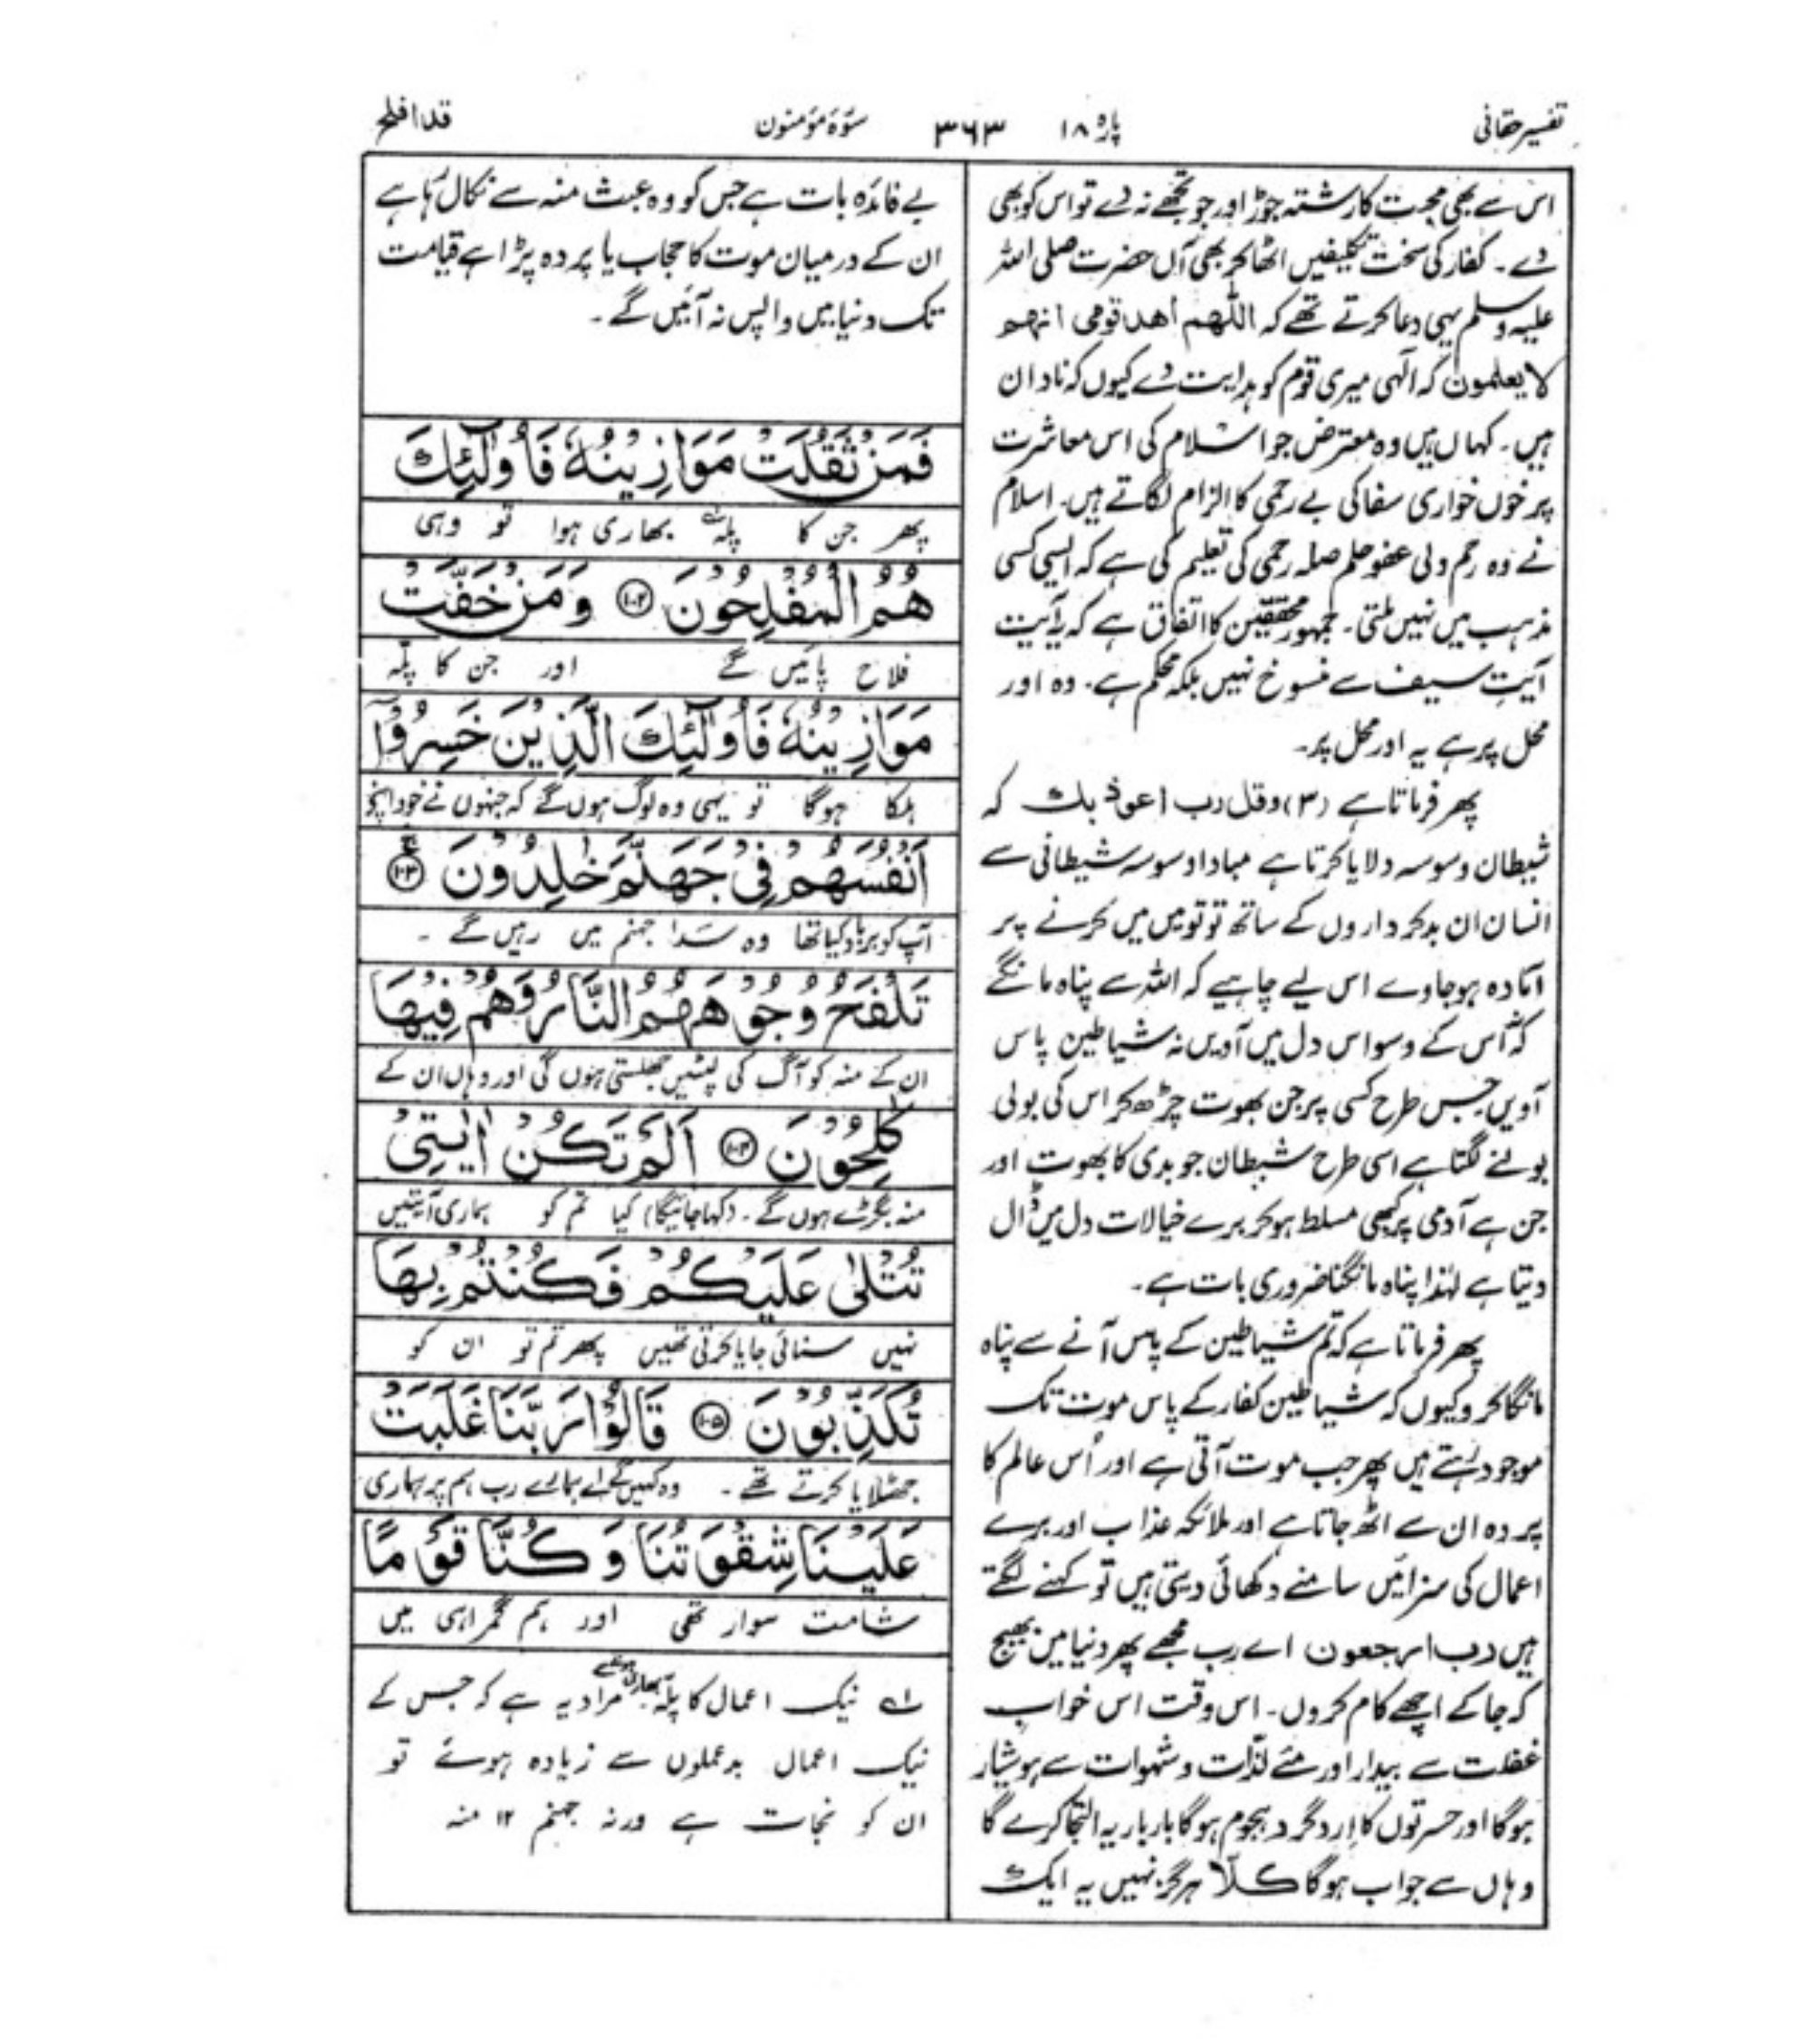 تفسیر حقانی
پارہ ۱۸
۳۶۳
سورۃ مومنون
قد افلح
اس سے بھی محبت کا رشتہ جوڑ اور جو تجھے نہ دے تو اس کو بھی
دے۔ کفار کی سخت تکلیفیں اٹھا کر بھی آں حضرت صلی اللہ
علیہ وسلم یہی دعا کرتے تھے کہ اللھم اھد قومی انھم
لا یعلمون کہ الٰہی میری قوم کو ہدایت دے کیوں کہ نادان
ہیں۔ کہاں ہیں وہ معترض جو اسلام کی اس معاشرت
پر خوں خواری سفاکی بے رحمی کا الزام لگاتے ہیں۔ اسلام
نے وہ رحم دلی عفو حلم صلہ رحمی کی تعلیم کی ہے کہ ایسی کسی
مذہب میں نہیں ملتی۔ جمہور محققین کا اتفاق ہے کہ یہ آیت
آیتِ سیف سے منسوخ نہیں بلکہ محکم ہے۔ وہ اور
محل پر ہے یہ اور محل پر۔
پھر فرماتا ہے (۳) وقل رب اعوذ بک کہ
شیطان وسوسہ دلایا کرتا ہے مبادا وسوسہ شیطانی سے
انسان ان بدکرداروں کے ساتھ تو تو میں میں کرنے پر
آمادہ ہو جاوے اس لیے چاہیے کہ اللہ سے پناہ مانگے
کہ اس کے وسواس دل میں آویں نہ شیاطین پاس
آویں جس طرح کسی پر جن بھوت چڑھ کر اس کی بولی
بولنے لگتا ہے اسی طرح شیطان جو بدی کا بھوت اور
جن ہے آدمی پر کبھی مسلط ہو کر برے خیالات دل میں ڈال
دیتا ہے لہٰذا پناہ مانگنا ضروری بات ہے۔
پھر فرماتا ہے کہ تم شیاطین کے پاس آنے سے پناہ
مانگا کرو کیوں کہ شیاطین کفار کے پاس موت تک
موجود رہتے ہیں پھر جب موت آتی ہے اور اُس عالم کا
پردہ ان سے اٹھ جاتا ہے اور ملائکہ عذاب اور برے
اعمال کی سزائیں سامنے دکھائی دیتی ہیں تو کہنے لگتے
ہیں رب ارجعون اے رب مجھے پھر دنیا میں بھیج
کہ جا کے اچھے کام کروں۔ اس وقت اس خواب
غفلت سے بیدار اور مئے لذّت و شہوات سے ہوشیار
ہوگا اور حسرتوں کا اِرد گرد ہجوم ہوگا بار بار یہ التجا کرے گا
وہاں سے جواب ہوگا کلّا ہرگز نہیں یہ ایک
بے فائدہ بات ہے جس کو وہ عبث منہ سے نکال رہا ہے
ان کے درمیان موت کا حجاب یا پردہ پڑا ہے قیامت
تک دنیا میں واپس نہ آئیں گے۔
فَمَنْ ثَقُلَتْ مَوَازِیْنُہٗ فَاُولٰٓئِكَ
پھر جن کا پلہ بھاری ہوا تو وہی
ھُمُ الْمُفْلِحُوْنَ ۝۱۰۲ وَمَنْ خَفَّتْ
فلاح پائیں گے اور جن کا پلّہ
مَوَازِیْنُہٗ فَاُولٰٓئِكَ الَّذِیْنَ خَسِرُوْۤا
ہلکا ہوگا تو یہی وہ لوگ ہوں گے کہ جنہوں نے خود اپنے
اَنْفُسَھُمْ فِیْ جَھَنَّمَ خٰلِدُوْنَ ۝۱۰۳
آپ کو برباد کیا تھا وہ سدا جہنم میں رہیں گے۔
تَلْفَحُ وُجُوْھَھُمُ النَّارُ وَھُمْ فِیْھَا
ان کے منہ کو آگ کی لپٹیں جھلستی ہوں گی اور وہاں ان کے
كٰلِحُوْنَ ۝۱۰۴ اَلَمْ تَكُنْ اٰیٰتِیْ
منہ بگڑے ہوں گے۔ (کہا جائیگا) کیا تم کو ہماری آیتیں
تُتْلٰی عَلَیْكُمْ فَكُنْتُمْ بِھَا
نہیں سنائی جایا کرتی تھیں پھر تم تو ان کو
تُكَذِّبُوْنَ ۝۱۰۵ قَالُوْا رَبَّنَا غَلَبَتْ
جھٹلایا کرتے تھے۔ وہ کہیں گے اے ہمارے رب ہم پر ہماری
عَلَیْنَا شِقْوَتُنَا وَكُنَّا قَوْمًا
شامت سوار تھی اور ہم گمراہی میں
لہ نیک اعمال کا پلّہ بھاری ہونے سے مراد یہ ہے کہ جس کے
نیک اعمال بدعملوں سے زیادہ ہوئے تو
ان کو نجات ہے ورنہ جہنم ۱۲ منہ